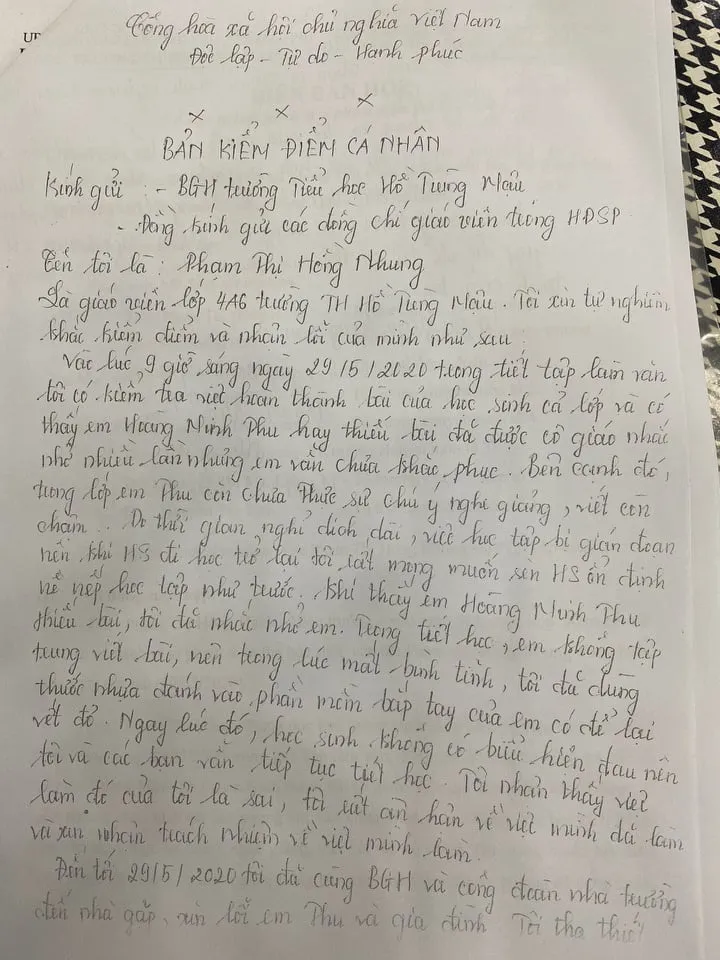 UB
Cộng hòa xã hội chủ nghĩa Việt Nam
Độc lập - Tự do - Hạnh phúc
x x x
BẢN KIỂM ĐIỂM CÁ NHÂN
Kính gửi : - BGH trường Tiểu học Hồ Tùng Mậu
- Đồng kính gửi các đồng chí giáo viên trong HĐSP
Tên tôi là : Phạm Thị Hồng Nhung
Là giáo viên lớp 4A6 trường TH Hồ Tùng Mậu. Tôi xin tự nghiêm
khắc kiểm điểm và nhận lỗi của mình như sau :
Vào lúc 9 giờ sáng ngày 29/5/2020 trong tiết tập làm văn
tôi có kiểm tra việc hoàn thành bài của học sinh cả lớp và có
thấy em Hoàng Minh Phu hay thiếu bài đã được cô giáo nhắc
nhở nhiều lần nhưng em vẫn chưa khắc phục. Bên cạnh đó,
trong lớp em Phu còn chưa thực sự chú ý nghe giảng, viết còn
chậm.. Do thời gian nghỉ dịch dài, việc học tập bị gián đoạn
nên khi HS đi học trở lại tôi rất mong muốn HS ổn định
nề nếp học tập như trước. Khi thấy em Hoàng Minh Phu
thiếu bài, tôi đã nhắc nhở em. Trong tiết học, em không tập
trung viết bài, nên trong lúc mất bình tĩnh, tôi đã dùng
thước nhựa đánh vào phần mềm bắp tay của em có để lại
vết đỏ. Ngay lúc đó, học sinh không có biểu hiện đau nên
tôi và các bạn vẫn tiếp tục tiết học. Tôi nhận thấy việc
làm đó của tôi là sai, tôi rất ân hận về việc mình đã làm
và xin nhận trách nhiệm về việc mình làm.
Đến tối 29/5/2020 tôi đã cùng BGH và công đoàn nhà trường
đến nhà gặp, xin lỗi em Phu và gia đình Tôi tha thiết